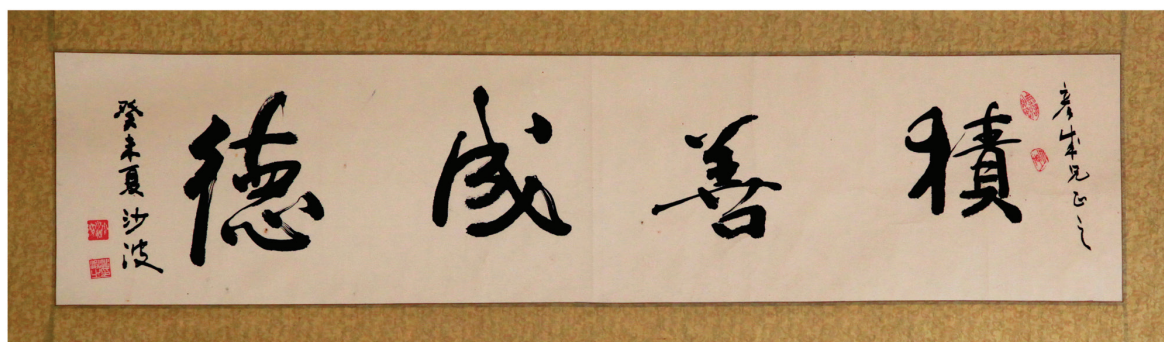 彦成兄正之
積善成德
癸未夏沙波